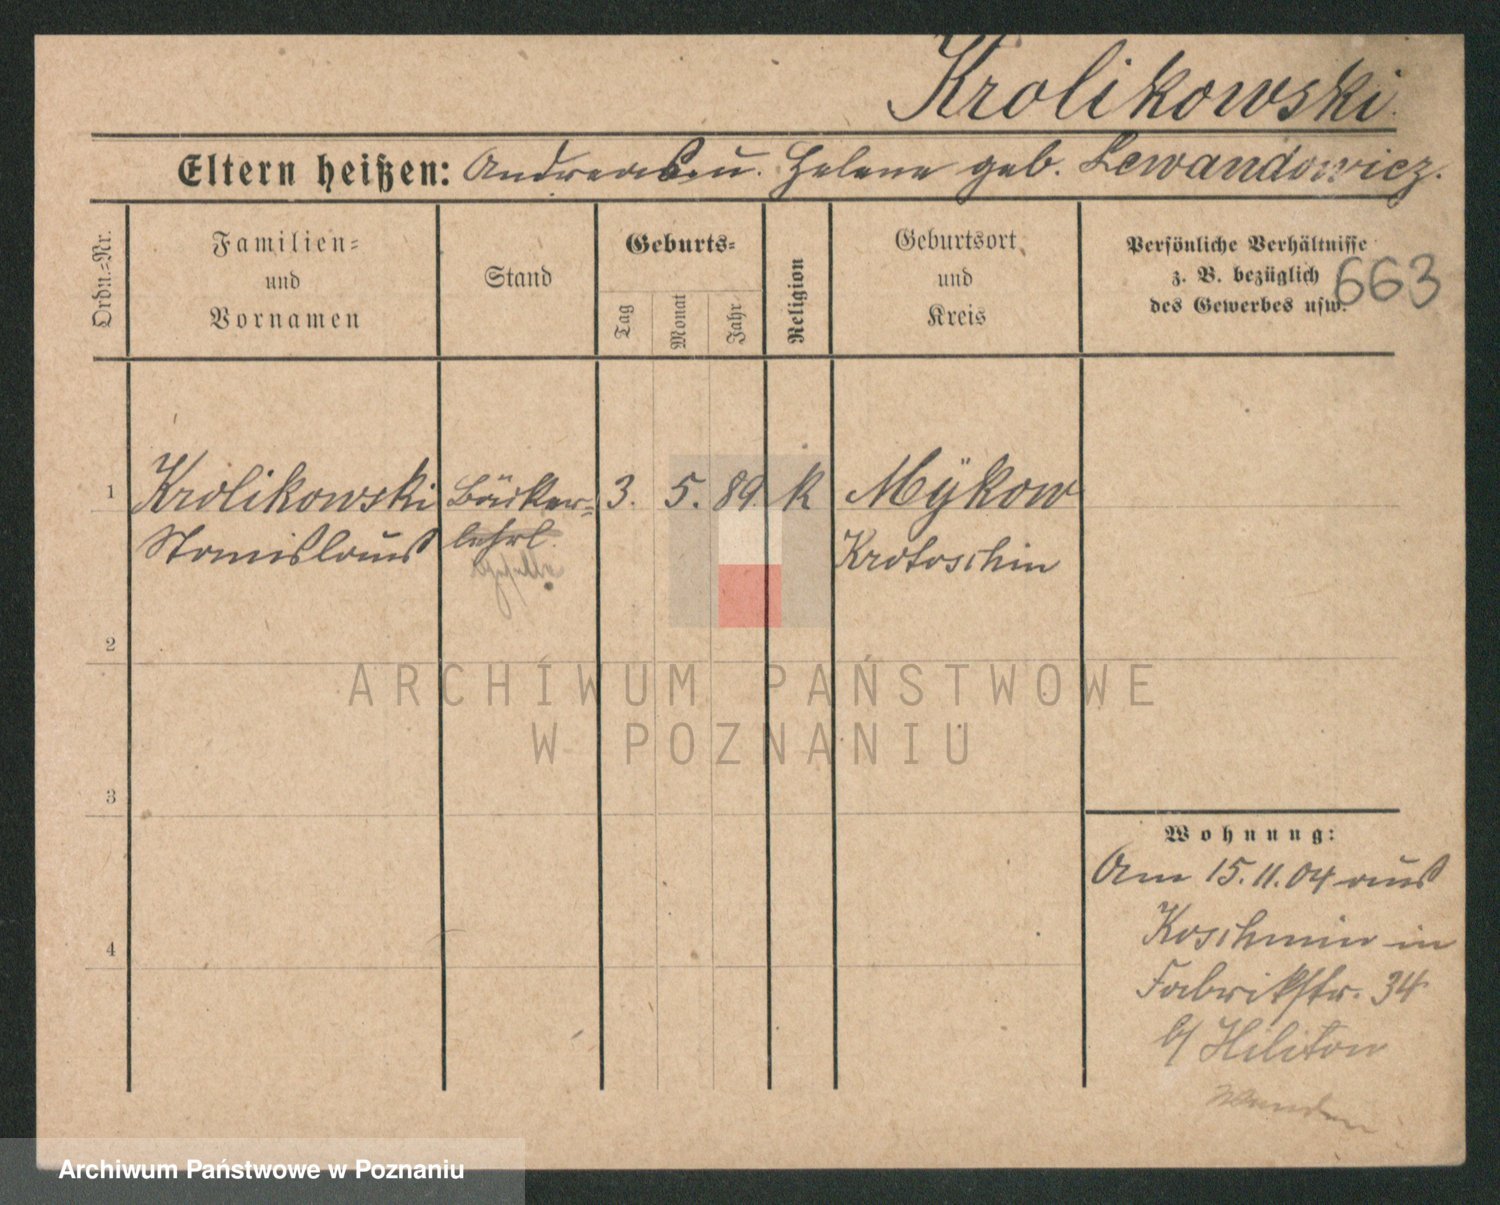 Krolikowski.
Eltern heißen: Andreas u. Helene geb. Lewandowicz.
Ordn.=Nr.
Familien=
und
Vornamen
Stand
Geburts=
Tag
Monat
Jahr
Religion
Geburtsort
und
Kreis
Persönliche Verhältnisse
z. B. bezüglich
des Gewerbes usw.
663
1
Krolikowski
Stanislaus
Bäcker=
lehrl.
3. 5. 89. K
Mÿkow
Krotoschin
2
3
4
Wohnung:
Am 15.11.04 aus
Koschmin in
Fabrikstr. 34
b/
Wenden
ARCHIWUM PAŃSTWOWE
W POZNANIU
Archiwum Państwowe w Poznaniu